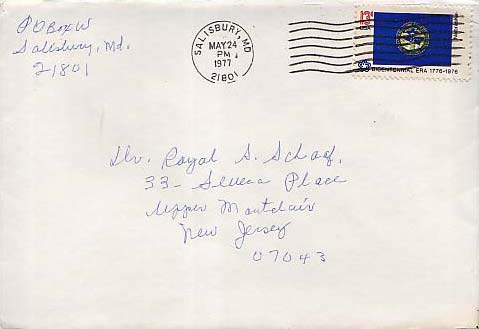 P O Box W
Salisbury, Md.
21801
SALISBURY, MD
MAY 24
PM
1977
21801
13c
BICENTENNIAL ERA 1776-1976
Dr. Royal S. Schaaf,
33- Seneca Place
Upper Montclair
New Jersey
07043